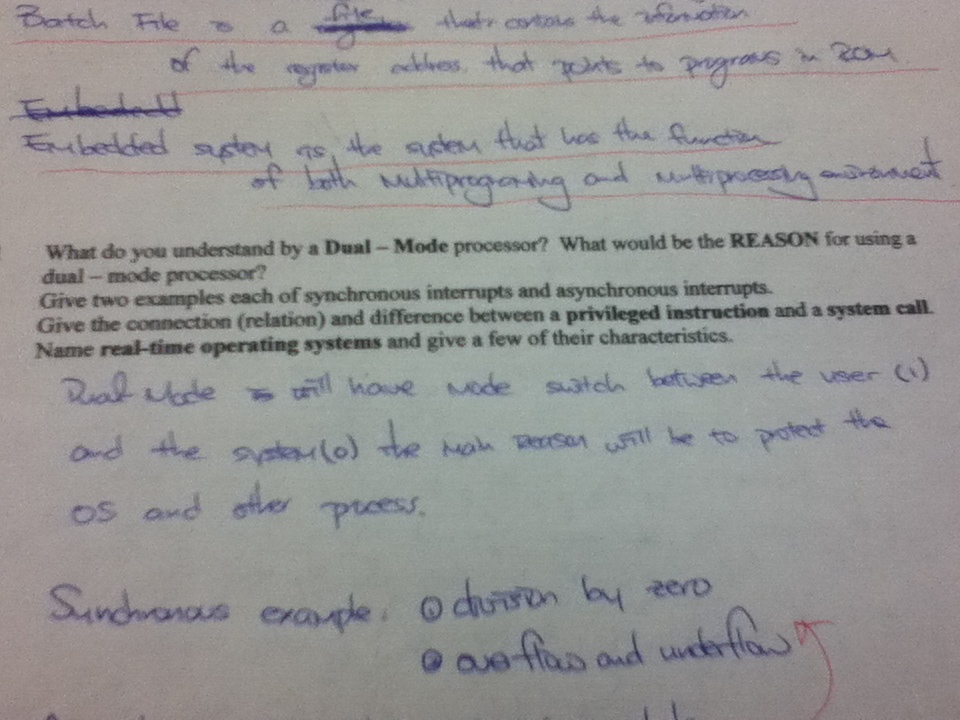 Batch File is a file that contains the information
of the register address that points to programs in ROM
Embedded
Embedded system is the system that has the function
of both Multiprograming and Multiprocessing environment
What do you understand by a Dual – Mode processor? What would be the REASON for using a
dual – mode processor?
Give two examples each of synchronous interrupts and asynchronous interrupts.
Give the connection (relation) and difference between a privileged instruction and a system call.
Name real-time operating systems and give a few of their characteristics.
Dual Mode will have mode switch between the user (1)
and the system(0) the main reason will be to protect the
OS and other process.
Synchronous example. ① division by zero
② overflow and underflow